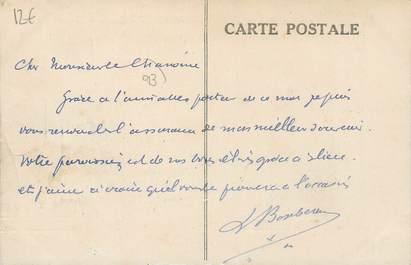 12€
CARTE POSTALE
Cher Monsieur le Chanoine
93
Grâce à l'aimable porteur de ce mot je puis
vous renouveler l'assurance de mes meilleurs souvenirs.
Votre paroissien est de nos et à Dieu.
et j'aime à croire qu'il vous le prouvera à l'occasion